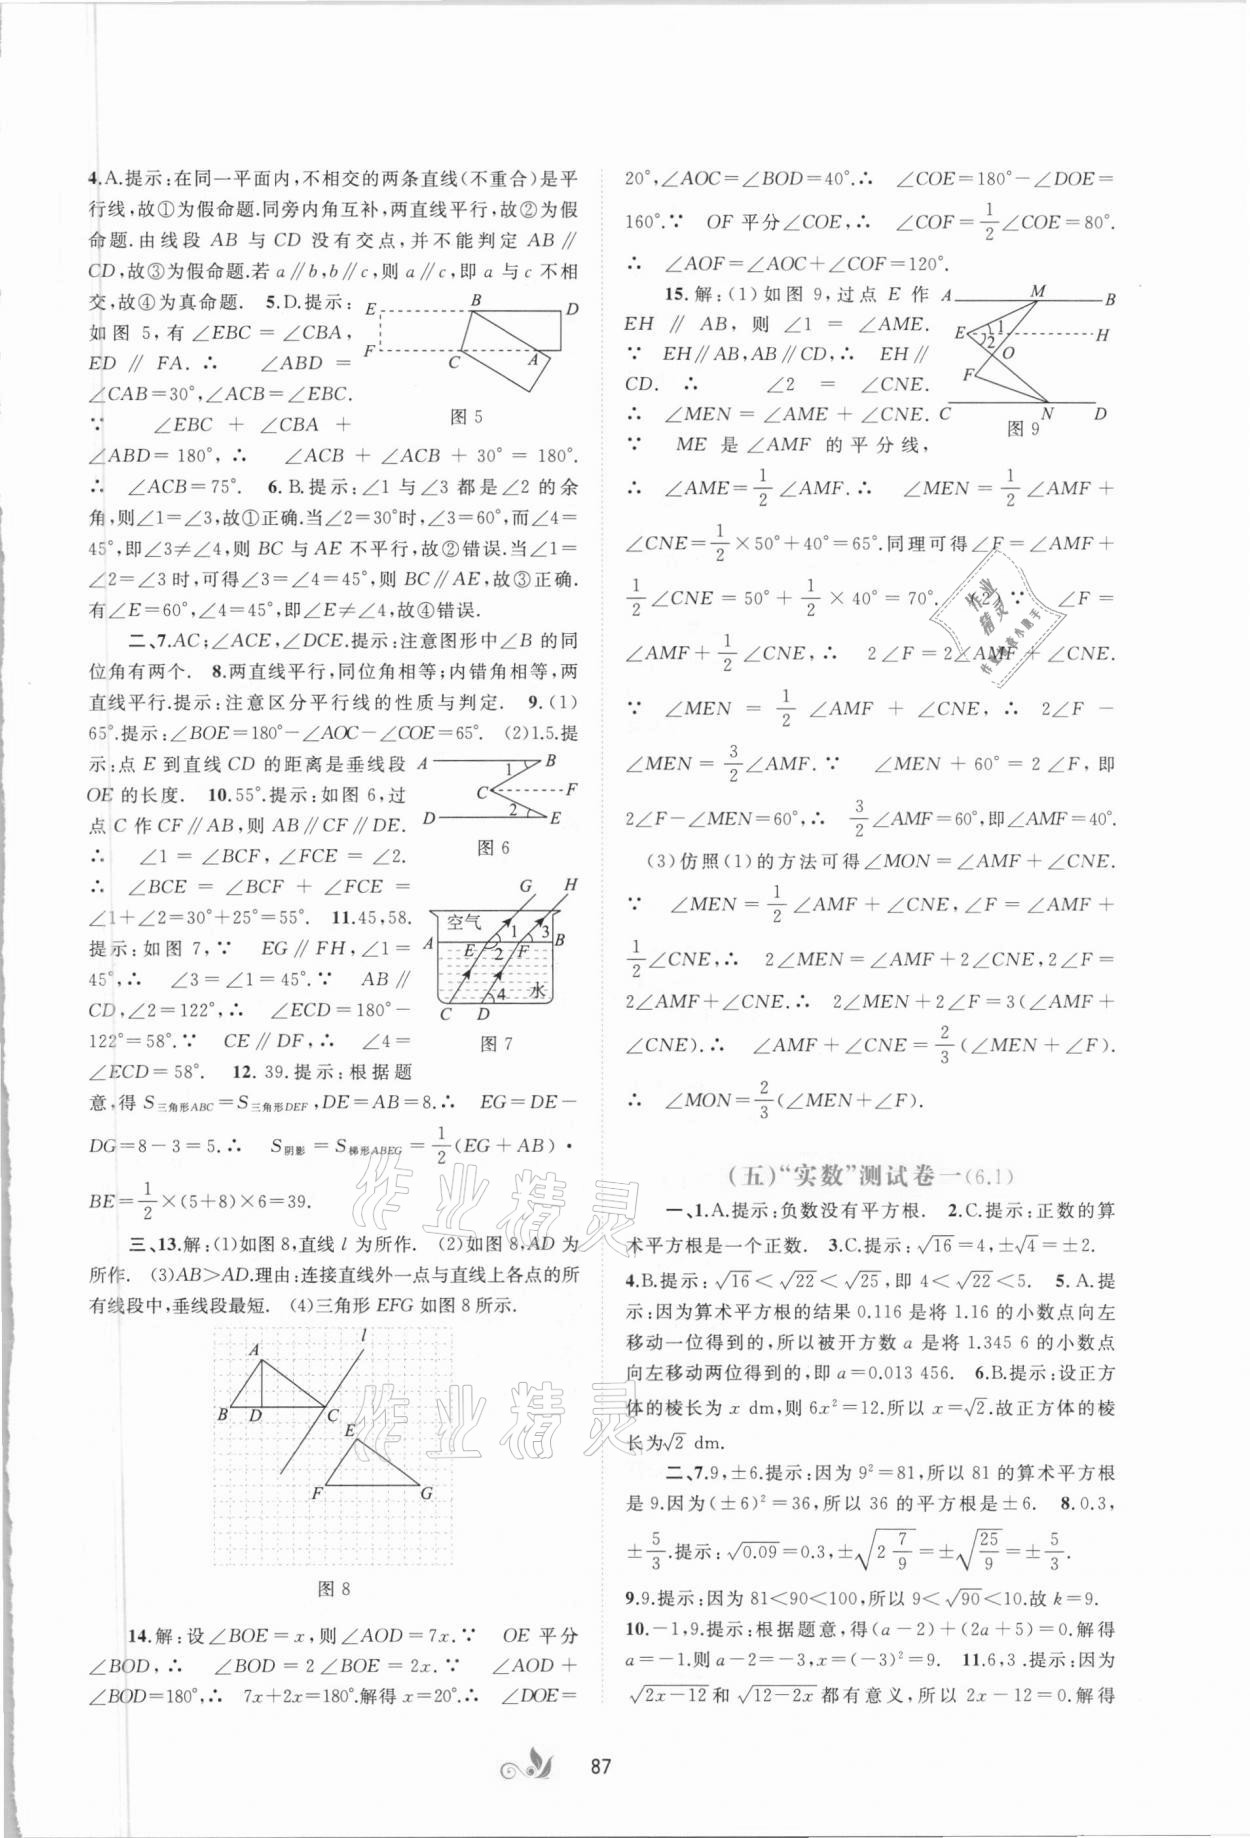 4.A.提示:在同一平面内,不相交的两条直线(不重合)是平
行线,故①为假命题.同旁内角互补,两直线平行,故②为假
命题.由线段 AB 与 CD 没有交点,并不能判定 AB∥
CD,故③为假命题.若 a∥b,b∥c,则 a∥c,即 a 与 c 不相
交,故④为真命题. 5.D.提示:
如图 5,有∠EBC=∠CBA,
ED∥FA.∴ ∠ABD=
∠CAB=30°,∠ACB=∠EBC.
∵ ∠EBC+∠CBA+
∠ABD=180°,∴ ∠ACB+∠ACB+30°=180°.
∴ ∠ACB=75°. 6.B.提示:∠1 与∠3 都是∠2 的余
角,则∠1=∠3,故①正确.当∠2=30°时,∠3=60°,而∠4=
45°,即∠3≠∠4,则 BC 与 AE 不平行,故②错误.当∠1=
∠2=∠3 时,可得∠3=∠4=45°,则 BC∥AE,故③正确.
有∠E=60°,∠4=45°,即∠E≠∠4,故④错误.
E B D
F C A
图 5
二、7.AC;∠ACE,∠DCE.提示:注意图形中∠B 的同
位角有两个. 8.两直线平行,同位角相等;内错角相等,两
直线平行.提示:注意区分平行线的性质与判定. 9.(1)
65°.提示:∠BOE=180°−∠AOC−∠COE=65°. (2)1.5.提
示:点 E 到直线 CD 的距离是垂线段
OE 的长度. 10.55°.提示:如图 6,过
点 C 作 CF∥AB,则 AB∥CF∥DE.
∴ ∠1=∠BCF,∠FCE=∠2.
∴ ∠BCE=∠BCF+∠FCE=
∠1+∠2=30°+25°=55°. 11.45,58.
提示:如图 7,∵ EG∥FH,∠1=
45°,∴ ∠3=∠1=45°.∵ AB∥
CD,∠2=122°,∴ ∠ECD=180°−
122°=58°.∵ CE∥DF,∴ ∠4=
∠ECD=58°. 12. 39.提示:根据题
意,得 S三角形ABC=S三角形DEF,DE=AB=8.∴ EG=DE−
DG=8−3=5.∴ S阴影=S梯形ABEG=1/2(EG+AB)·
BE=1/2×(5+8)×6=39.
A 1 B
C F
D 2 E
图 6
G H
空气
A E 1 2 F 3 B
4 水
C D
图 7
三、13.解:(1)如图 8,直线 l 为所作. (2)如图 8,AD 为
所作. (3)AB>AD.理由:连接直线外一点与直线上各点的所
有线段中,垂线段最短. (4)三角形 EFG 如图 8 所示.
l
A
B D C
E
F G
图 8
14.解:设∠BOE=x,则∠AOD=7x.∵ OE 平分
∠BOD,∴ ∠BOD=2∠BOE=2x.∵ ∠AOD+
∠BOD=180°,∴ 7x+2x=180°.解得 x=20°.∴ ∠DOE=
20°,∠AOC=∠BOD=40°.∴ ∠COE=180°−∠DOE=
160°.∵ OF 平分∠COE,∴ ∠COF=1/2∠COE=80°.
∴ ∠AOF=∠AOC+∠COF=120°.
15.解:(1)如图 9,过点 E 作
EH∥AB,则∠1=∠AME.
∵ EH∥AB,AB∥CD,∴ EH∥
CD.∴ ∠2=∠CNE.
∴ ∠MEN=∠AME+∠CNE.
∵ ME 是∠AMF 的平分线,
A M B
E 1 2 H
O
F
C N D
图 9
∴ ∠AME=1/2∠AMF.∴ ∠MEN=1/2∠AMF+
∠CNE=1/2×50°+40°=65°.同理可得∠F=∠AMF+
1/2∠CNE=50°+1/2×40°=70°. (2)∵ ∠F=
∠AMF+1/2∠CNE,∴ 2∠F=2∠AMF+∠CNE.
∵ ∠MEN=1/2∠AMF+∠CNE,∴ 2∠F−
∠MEN=3/2∠AMF.∵ ∠MEN+60°=2∠F,即
2∠F−∠MEN=60°,∴ 3/2∠AMF=60°,即∠AMF=40°.
(3)仿照(1)的方法可得∠MON=∠AMF+∠CNE.
∵ ∠MEN=1/2∠AMF+∠CNE,∠F=∠AMF+
1/2∠CNE,∴ 2∠MEN=∠AMF+2∠CNE,2∠F=
2∠AMF+∠CNE.∴ 2∠MEN+2∠F=3(∠AMF+
∠CNE).∴ ∠AMF+∠CNE=2/3(∠MEN+∠F).
∴ ∠MON=2/3(∠MEN+∠F).
(五)“实数”测试卷一(6.1)
一、1.A.提示:负数没有平方根. 2.C.提示:正数的算
术平方根是一个正数. 3.C.提示:√16=4,±√4=±2.
4.B.提示:√16<√22<√25,即 4<√22<5. 5.A.提
示:因为算术平方根的结果 0.116 是将 1.16 的小数点向左
移动一位得到的,所以被开方数 a 是将 1.345 6 的小数点
向左移动两位得到的,即 a=0.013 456. 6.B.提示:设正方
体的棱长为 x dm,则 6x²=12.所以 x=√2.故正方体的棱
长为√2 dm.
二、7.9,±6.提示:因为 9²=81,所以 81 的算术平方根
是 9.因为(±6)²=36,所以 36 的平方根是±6. 8.0.3,
±5/3.提示:√0.09=0.3,±√(2 7/9)=±√(25/9)=±5/3.
9.9.提示:因为 81<90<100,所以 9<√90<10.故 k=9.
10.−1,9.提示:根据题意,得(a−2)+(2a+5)=0.解得
a=−1.则 a−2=−3,x=(−3)²=9. 11.6,3.提示:因为
√(2x−12)和√(12−2x)都有意义,所以 2x−12=0.解得
作业精灵
作业精灵
作业精灵
87